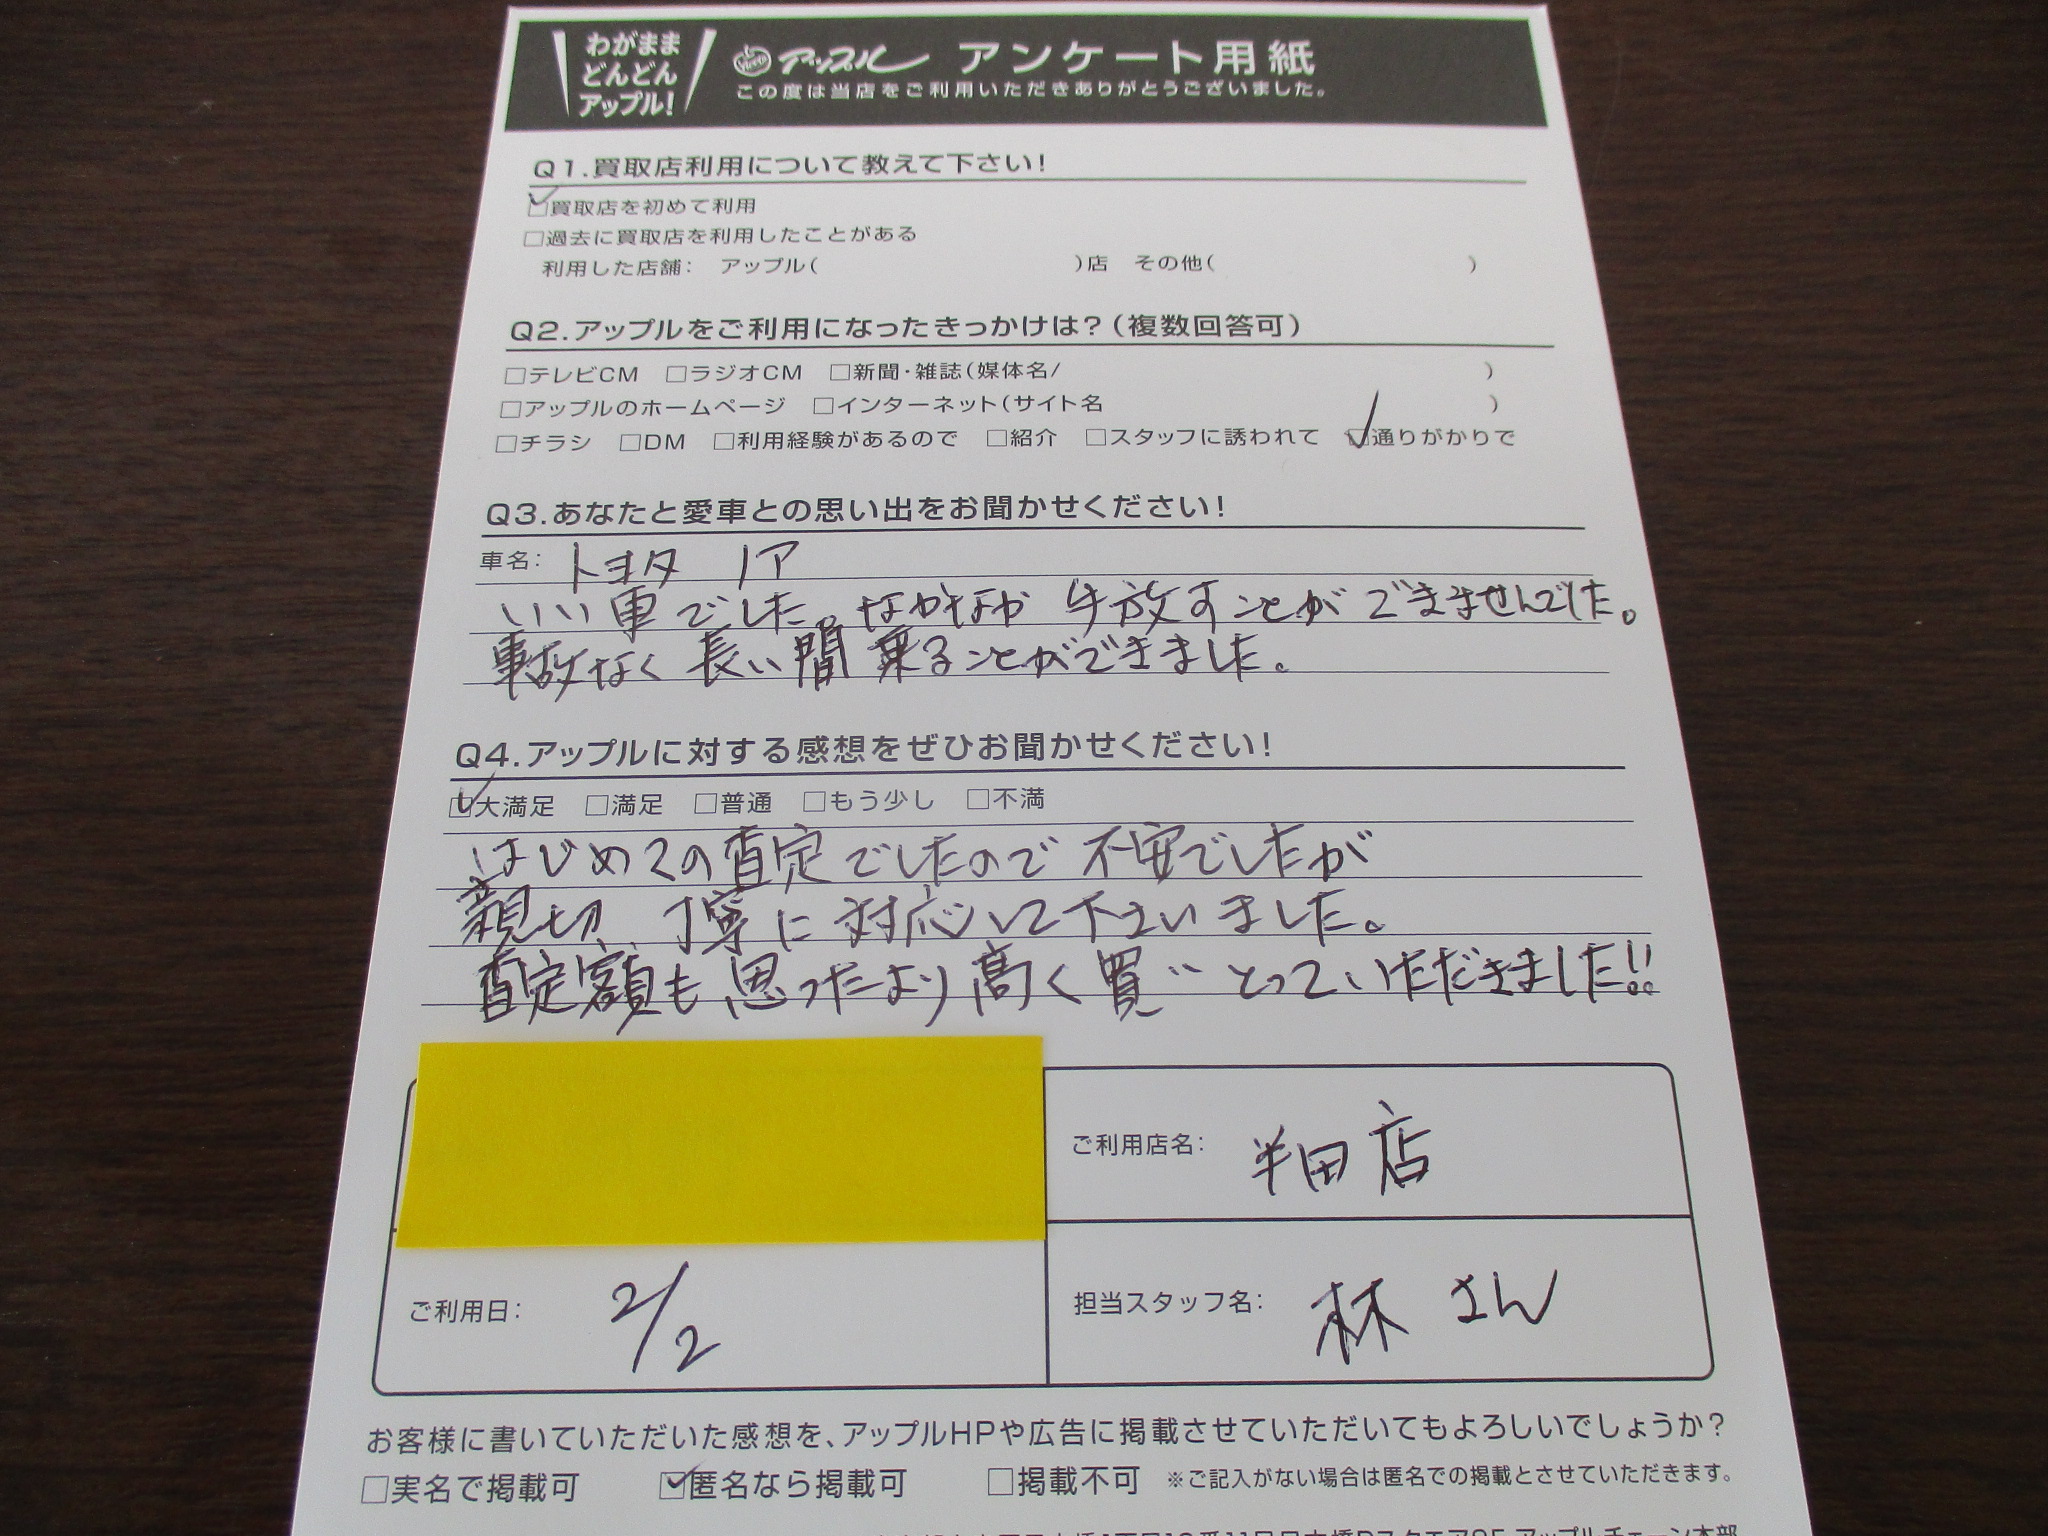 わがまま
どんどん
アップル!
アップル アンケート用紙
この度は当店をご利用いただきありがとうございました。
Q1.買取店利用について教えて下さい!
☑買取店を初めて利用
□過去に買取店を利用したことがある
利用した店舗: アップル( )店 その他( )
Q2.アップルをご利用になったきっかけは?(複数回答可)
□テレビCM □ラジオCM □新聞・雑誌(媒体名/ )
□アップルのホームページ □インターネット(サイト名 )
□チラシ □DM □利用経験があるので □紹介 □スタッフに誘われて ☑通りがかりで
Q3.あなたと愛車との思い出をお聞かせください!
車名: トヨタ ノア
いい車でした。なかなか手放すことができませんでした。
事故なく長い間乗ることができました。
Q4.アップルに対する感想をぜひお聞かせください!
☑大満足 □満足 □普通 □もう少し □不満
はじめての査定でしたので不安でしたが
親切 丁寧に対応して下さいました。
査定額も思ったより高く買いとっていただきました!!
ご利用店名: 半田店
ご利用日: 2/2
担当スタッフ名: 林さん
お客様に書いていただいた感想を、アップルHPや広告に掲載させていただいてもよろしいでしょうか?
□実名で掲載可 ☑匿名なら掲載可 □掲載不可 ※ご記入がない場合は匿名での掲載とさせていただきます。